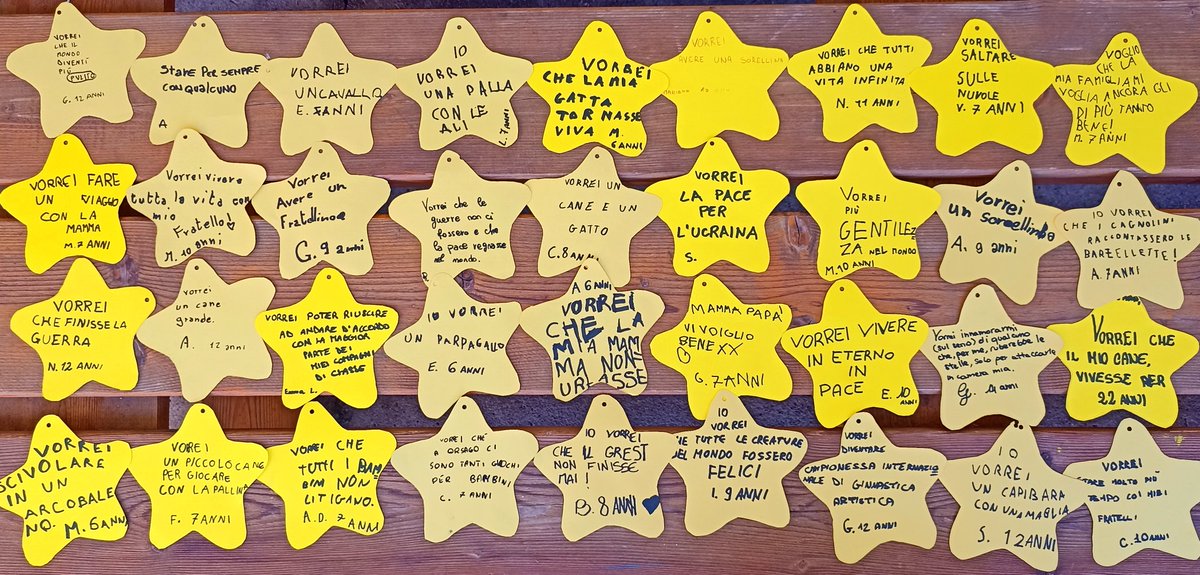 VORREI
CHE IL
MONDO
DIVENTI
PIÙ
PULITO
G. 12 ANNI
STARE PER SEMPRE
CON QUALCUNO
A
VORREI
UN CAVALLO
E. 7 ANNI
IO
VORREI
UNA PALLA
CON LE
ALI
L. 7 ANNI
VORREI
CHE LA MIA
GATTA
TORNASSE
VIVA M.
6 ANNI
VORREI
AVERE UNA SORELLINA
VORREI CHE TUTTI
ABBIANO UNA
VITA INFINITA
N. 11 ANNI
VORREI
SALTARE
SULLE
NUVOLE
V. 7 ANNI
VOGLIO
CHE LA
MIA FAMIGLIA MI
VOGLIA ANCORA GLI
DI PIÙ TANTO
BENE!
M. 7 ANNI
VORREI FARE
UN VIAGGIO
CON LA
MAMMA
M. 7 ANNI
Vorrei vivere
tutta la vita con
mio
Fratello
M. 10 anni
Vorrei
Avere un
Fratellino
G. 9 anni
Vorrei che le
guerre non ci
fossero e che
la pace regnasse
nel mondo.
VORREI UN
CANE E UN
GATTO
C. 8 ANNI
VORREI
LA PACE PER
L'UCRAINA
S.
VORREI
PIÙ
GENTILEZ
ZA NEL MONDO
M. 10 ANNI
Vorrei
un sorellimo
A. 9 anni
IO VORREI
CHE I CAGNOLINI
RACCONTASSERO LE
BARZELLETTE!
A. 7 ANNI
VORREI
CHE FINISSE LA
GUERRA
N. 12 ANNI
vorrei
un cane
grande.
A. 12 anni
VORREI POTER RIUSCIRE
AD ANDARE D'ACCORDO
CON LA MAGGIOR
PARTE DEI
MIEI COMPAGNI
DI CLASSE
Emma L.
IO VORREI
UN PARPAGALLO
E. 6 ANNI
A 6 ANNI
VORREI
CHE LA
MIA MAM
MA NON
URLASSE
MAMMA PAPA'
VI VOIGLIO
BENE XX
G. 7 ANNI
VORREI VIVERE
IN ETERNO
IN
PACE
E. 10
ANNI
Vorrei innamorarmi
(sul serio) di qualcuno
che, per me, ruberebbe le
stelle, solo per attaccarle
in camera mia.
G. 11 anni
VORREI CHE
IL MIO CANE,
VIVESSE PER
22 ANNI
VORREI
SCIVOLARE
IN UN
ARCOBALE
NO. M. 6 ANNI
VOREI
UN PICCOLO CANE
PER GIOCARE
CON LA PALLINA
F. 7 ANNI
VORREI CHE
TUTTI I BAM
BINI NON
LITIGANO.
A.D. 7 ANNI
VOREI CHE
A ORSAGO CI
SONO TANTI GIOCHI
PER BAMBINI
C. 7 ANNI
IO VORREI
CHE IL GREST
NON FINISSE
MAI!
B. 8 ANNI
IO
VORREI
CHE TUTTE LE CREATURE
NEL MONDO FOSSERO
FELICI
I. 9 ANNI
VORREI
DIVENTARE
CAMPIONESSA INTERNAZIO
NALE DI GINNASTICA
ARTISTICA
G. 12 ANNI
IO
VORREI
UN CAPIBARA
CON UNA MAGLIA
S. 12 ANNI
VORREI
STARE MOLTO PIÙ
TEMPO COI MIEI
FRATELLI
C. 10 ANNI